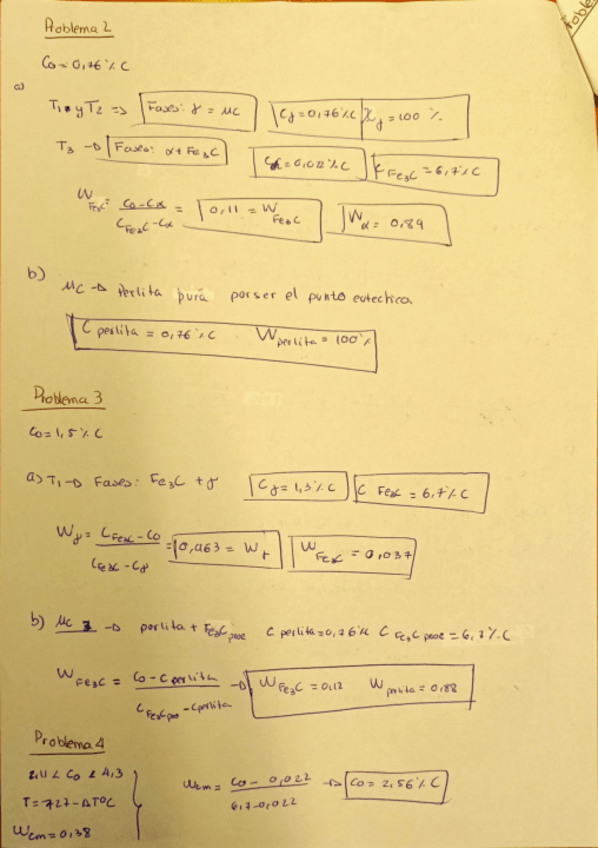 Problema 2
Co = 0,76 % C
a)
T1 y T2 => Fases: γ = MC Cγ = 0,76 % C Xγ = 100 %
T3 → Fases: α + Fe3C Cα = 0,022 % C C Fe3C = 6,7 % C
W Fe3C = Co - Cα / C Fe3C - Cα = 0,11 = W Fe3C Wα = 0,89
b) MC → Perlita pura por ser el punto eutechica
C perlita = 0,76 % C W perlita = 100 %
Problema 3
Co = 1,5 % C
a) T1 → Fases: Fe3C + γ Cγ = 1,3 % C C Fe3C = 6,7 % C
Wγ = C Fe3C - Co / C Fe3C - Cγ = 0,963 = Wγ W Fe3C = 0,037
b) MC → perlita + Fe3C proe C perlita = 0,76 % C Fe3C proe = 6,7 % C
W Fe3C = Co - C perlita / C Fe3C pro - C perlita → W Fe3C = 0,12 W perlita = 0,88
Problema 4
2,11 < Co < 4,3
T = 727 - ΔT ºC
Wcm = 0,38
Wcm = Co - 0,022 / 6,7 - 0,022 → Co = 2,56 % C